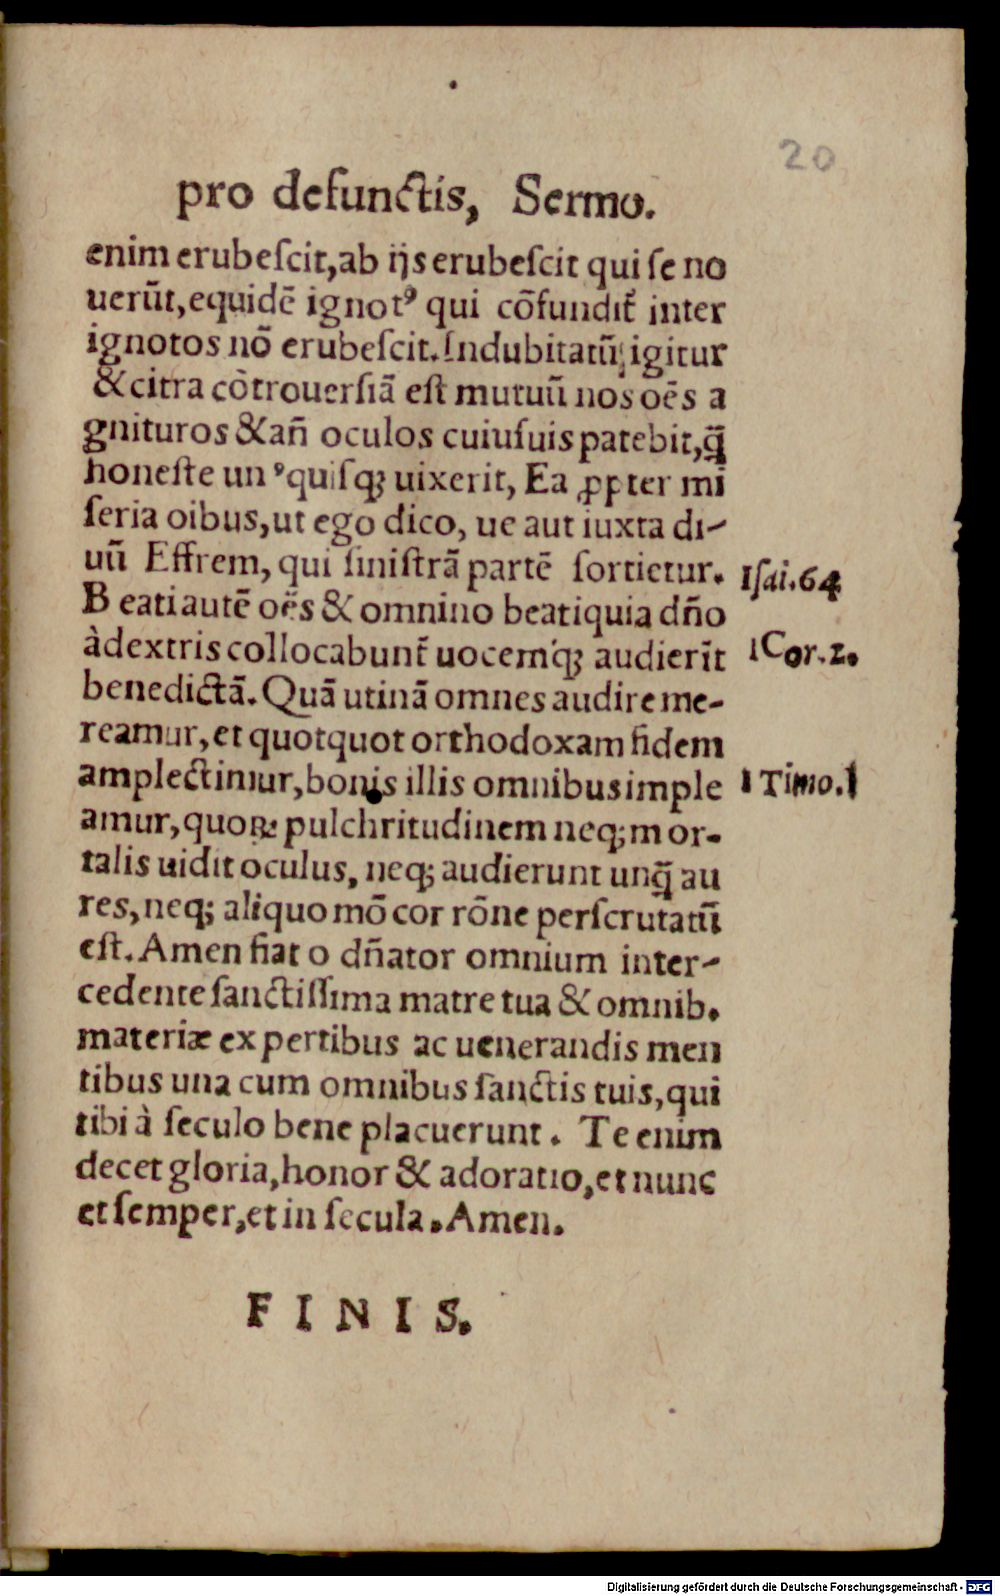 20
pro defunctis, Sermo.
enim erubeſcit,ab ijs erubeſcit qui ſe no
uerũt,equidẽ ignotꝰ qui cõfundit᷑ inter
ignotos nõ erubeſcit.Indubitatũ igitur
&citra cõtrouerſiã eſt mutuũ nos oẽs a
gnituros &añ oculos cuiuſuis patebit,q̃
honeſte unꝰquiſqꝫ uixerit, Ea ꝓpter mi
ſeria oibus,ut ego dico, ue aut iuxta di-
uũ Effrem, qui ſiniſtrã partẽ ſortietur.
Isai.64
Beati autẽ oẽs & omnino beati quia dño
àdextris collocabunt᷑ uocemqꝫ audierĩt
1Cor.2.
benedictã.Quã utinã omnes audire me-
reamur,et quotquot orthodoxam fidem
amplectimur,bonis illis omnibus imple
1 Timo.1
amur,quoꝝ pulchritudinem neqꝫ mor-
talis uidit oculus, neqꝫ audierunt unq̃ au
res,neqꝫ aliquo mõ cor rõne perſcrutatũ
eſt.Amen fiat o dñator omnium inter-
cedente ſanctiſſima matre tua & omnib.
materiæ expertibus ac uenerandis men
tibus una cum omnibus ſanctis tuis,qui
tibi à ſeculo bene placuerunt. Te enim
decet gloria,honor & adoratio,et nunc
et ſemper,et in ſecula.Amen.
F I N I S.
Digitalisierung gefördert durch die Deutsche Forschungsgemeinschaft - DFG